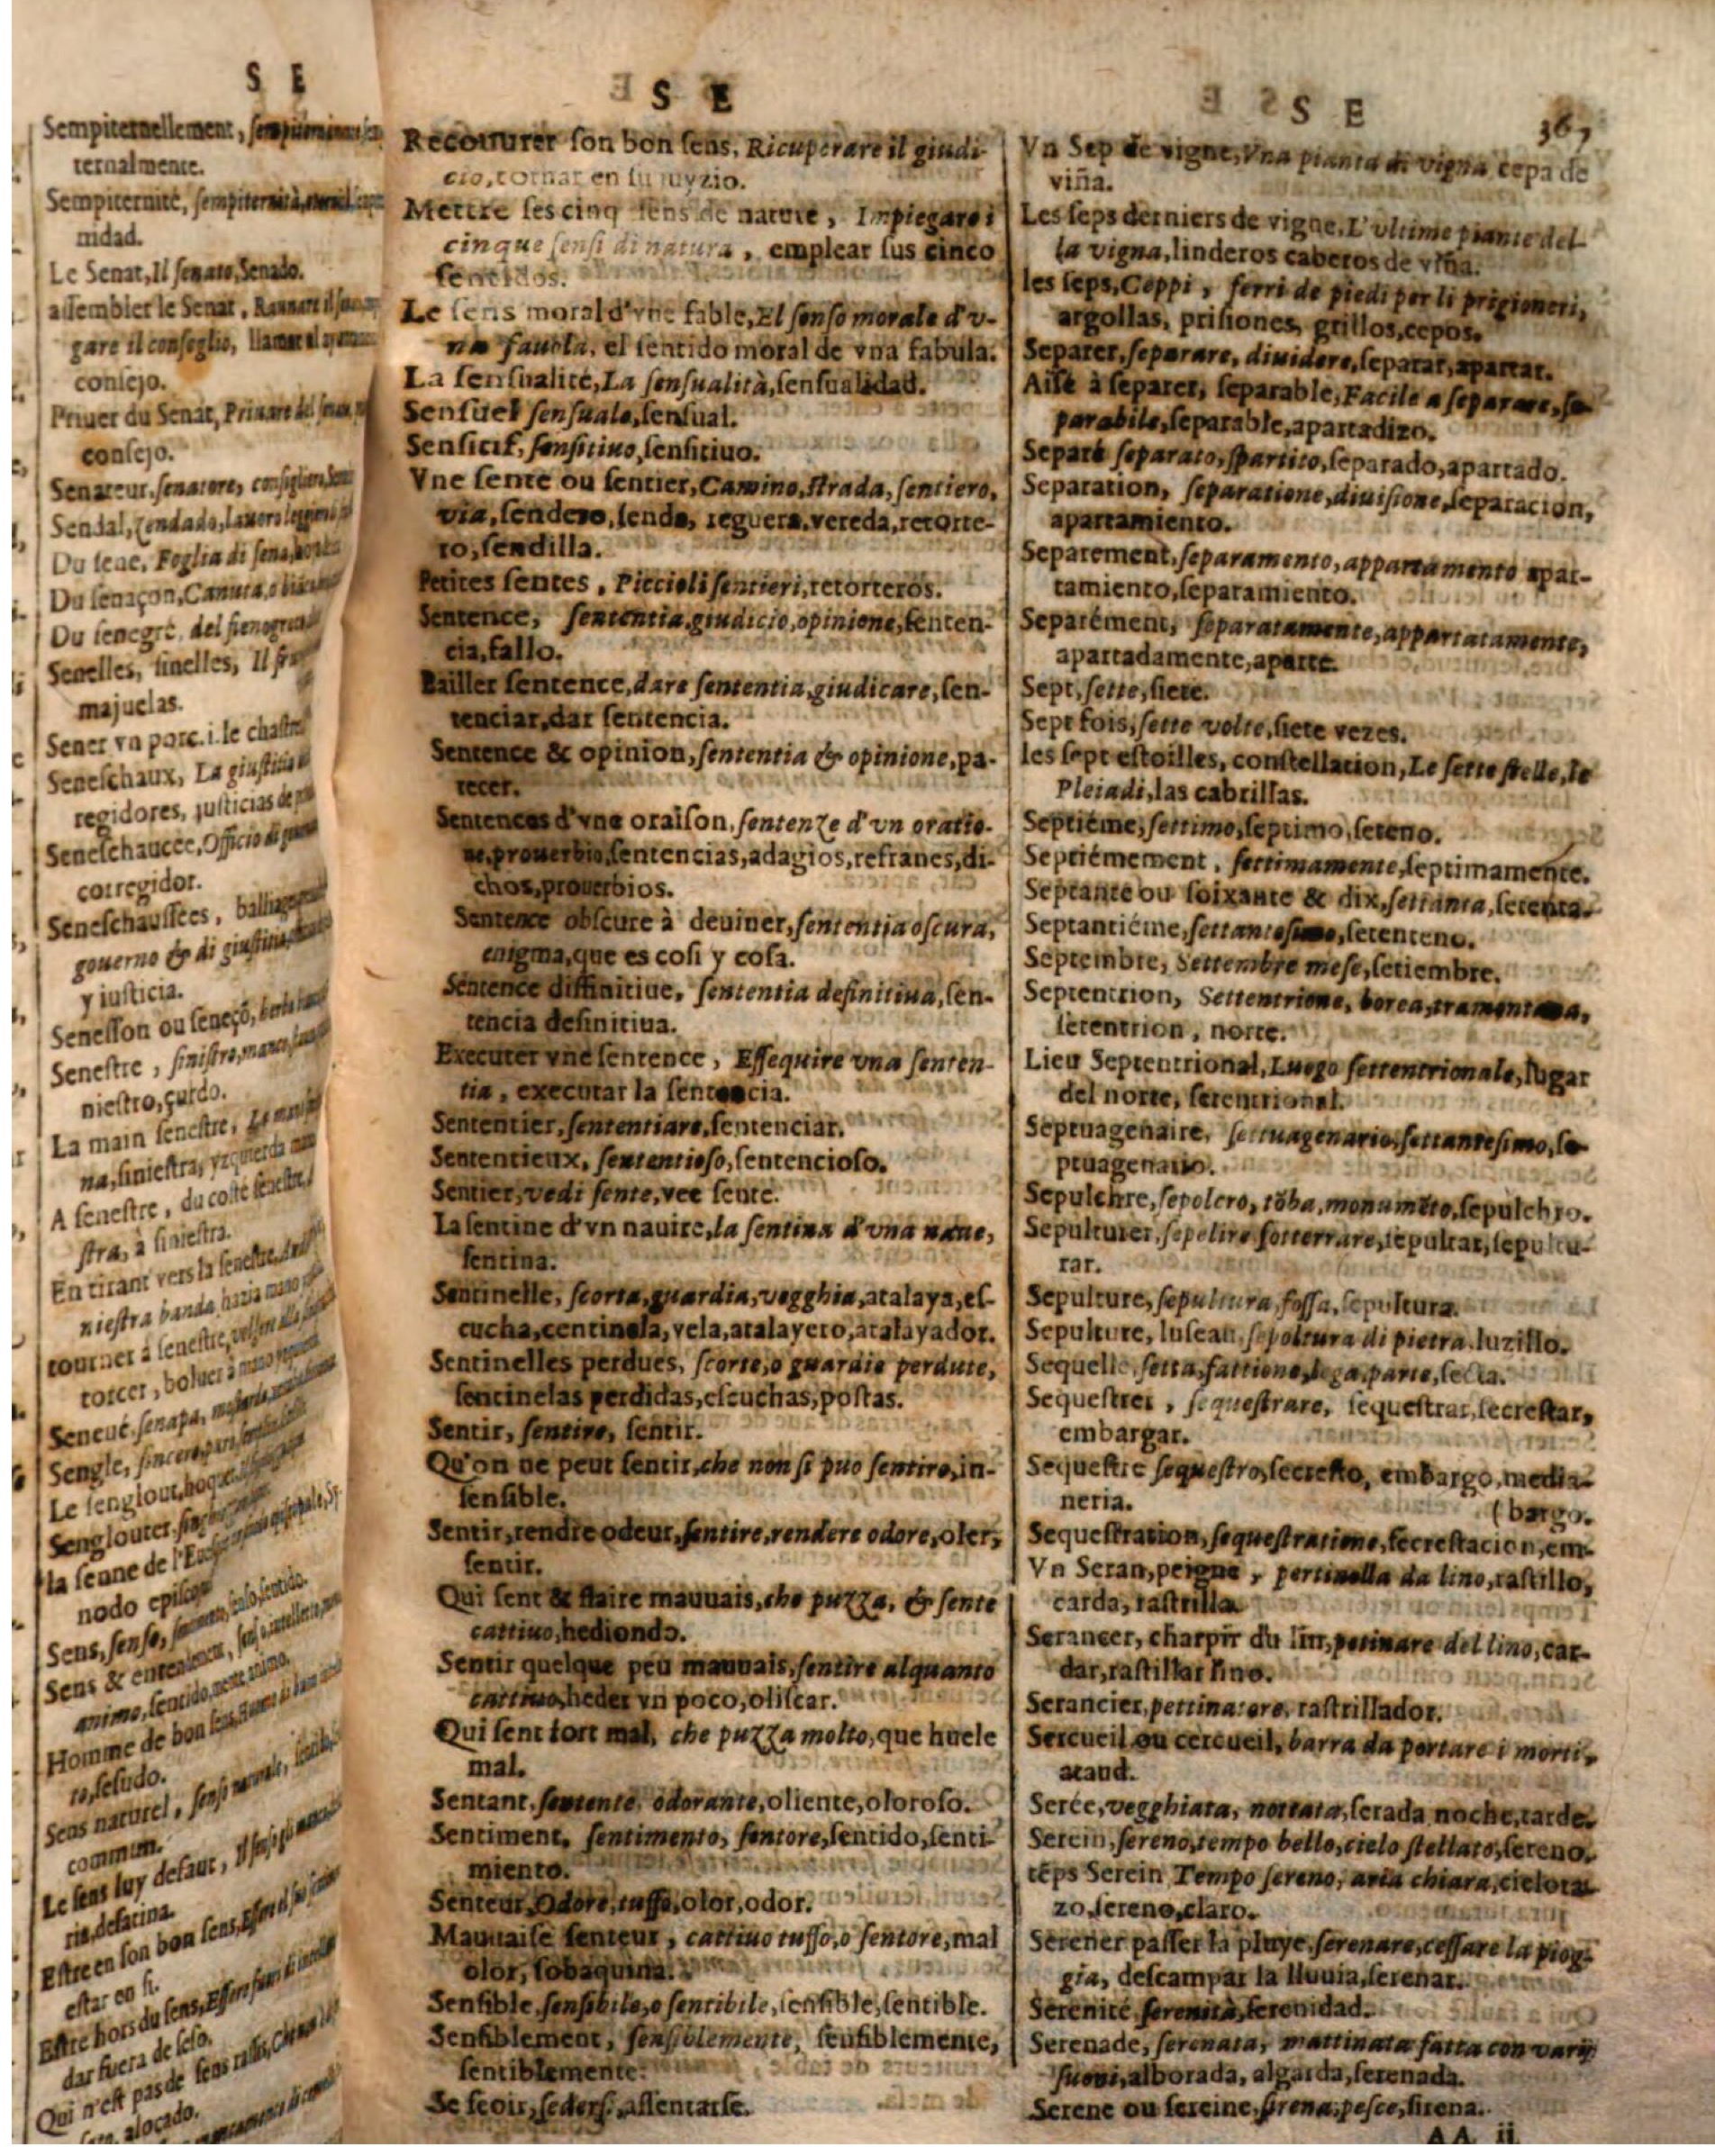 S E
Sempiternellement,
ternalmente.
Sempiternité, sempiternità,
nidad.
Le Senat, Il senato, Senado.
assembler le Senat,
gare il conseglio,
consejo.
Priuer du Senat, Priuare del
consejo.
Senateur, senatore,
Sendal, zendado,
Du sene, Foglia di sena,
Du senaçon, Canuta,
Du senegré, del fienogreco
Senelles, sinelles, Il
majuelas.
Sener vn porc. i. le
Seneschaux, La giustitia
regidores, justicias de
Seneschaucée, Officio di
corregidor.
Seneschaussées,
gouerno & di giustitia,
y iusticia.
Senesson ou seneçõ,
Senestre, sinistro,
niestro, çurdo.
La main senestre,
na, siniestra, yzquierda
A senestre, du costé senestre,
stra, à siniestra.
En tirant vers la senestre,
niestra banda, hazia mano
tourner à senestre,
torcer, boluer à mano
Seneué, senapa,
Sengle, sincero,
Le senglout, hoquet,
Senglouter,
la senne de l'
nodo
Sens, senso, sentido.
Sens & entendement,
animo, sentido,
Homme de bon sens,
to, sesudo.
Sens naturel,
commun.
Le sens luy defaut,
ria, desatina.
Estre en son bon sens,
estar en si.
Estre hors du sens,
dar fuera de seso.
Qui n'est pas de sens rassis,
alocado.
S E
Recouurer son bon sens, Ricuperare il giudi-
cio, tornar en su juyzio.
Mettre ses cinq sens de nature, Impiegare i
cinque sensi di natura, emplear sus cinco
sentidos.
Le sens moral d'vne fable, El senso morale d'v-
na fauola, el sentido moral de vna fabula.
La sensualité, La sensualità, sensualidad.
Sensuel sensuale, sensual.
Sensitif, sensitiuo, sensitiuo.
Vne sente ou sentier, Camino, strada, sentiero,
via, sendero, senda, reguera, vereda, retorte-
ro, sendilla.
Petites sentes, Piccioli sentieri, retorteros.
Sentence, sententia, giudicio, opinione, senten-
cia, fallo.
Bailler sentence, dare sententia, giudicare, sen-
tenciar, dar sentencia.
Sentence & opinion, sententia & opinione, pa-
recer.
Sentences d'vne oraison, sentenze d'vn oratio-
ne, prouerbio, sentencias, adagios, refranes, di-
chos, prouerbios.
Sentence obscure à deuiner, sententia oscura,
enigma, que es cosi y cosa.
Sentence diffinitiue, sententia definitiua, sen-
tencia definitiua.
Executer vne sentence, Essequire vna senten-
tia, executar la sentencia.
Sententier, sententiare, sentenciar.
Sententieux, sententioso, sentencioso.
Sentier, vedi sente, vee sente.
La sentine d'vn nauire, la sentina d'vna naue,
sentina.
Sentinelle, scorta, guardia, vegghia, atalaya, es-
cucha, centinela, vela, atalayero, atalayador.
Sentinelles perdues, scorte, o guardie perdute,
sentinelas perdidas, escuchas, postas.
Sentir, sentire, sentir.
Qu'on ne peut sentir, che non si puo sentire, in-
sensible.
Sentir, rendre odeur, sentire, rendere odore, oler,
sentir.
Qui sent & flaire mauuais, che puzza, & sente
cattiuo, hediondo.
Sentir quelque peu mauuais, sentire alquanto
cattiuo, heder vn poco, oliscar.
Qui sent fort mal, che puzza molto, que huele
mal.
Sentant, sentente, odorante, oliente, oloroso.
Sentiment, sentimento, sentore, sentido, senti-
miento.
Senteur, Odore, tuffo, olor, odor.
Mauuaise senteur, cattiuo tuffo, o sentore, mal
olor, sobaquina.
Sensible, sensibile, o sentibile, sensible, sentible.
Sensiblement, sensiblemente, sensiblemente,
sentiblemente.
Se seoir, sedersi, assentarse.
S E
367
Vn Sep de vigne, Vna pianta di vigna cepa de
viña.
Les seps derniers de vigne, L'vltime piante del-
la vigna, linderos caberos de viña.
les seps, Ceppi, ferri de piedi per li prigioneri,
argollas, prisiones, grillos, cepos.
Separer, separare, diuidere, separar, apartar.
Aisé à separer, separable, Facile a separare, se-
parabile, separable, apartadizo.
Separé separato, spartito, separado, apartado.
Separation, separatione, diuisione, separacion,
apartamiento.
Separement, separamento, appartamento apar-
tamiento, separamiento.
Separément, separatamente, appartatamente,
apartadamente, aparte.
Sept, sette, siete.
Sept fois, sette volte, siete vezes.
les sept estoilles, constellation, Le sette stelle, le
Pleiadi, las cabrillas.
Septiéme, settimo, septimo, seteno.
Septiémement, settimamente, septimamente.
Septante ou soixante & dix, settanta, setenta.
Septantiéme, settantesimo, setenteno.
Septembre, Settembre mese, setiembre.
Septentrion, Settentrione, borea, tramontana,
setentrion, norte.
Lieu Septentrional, Luogo settentrionale, lugar
del norte, setentrional.
Septuagenaire, settuagenario, settantesimo, se-
ptuagenario.
Sepulchre, sepolcro, tõba, monumẽto, sepulchro.
Sepulturer, sepelire sotterrare, sepultar, sepultu-
rar.
Sepulture, sepultura, fossa, sepultura.
Sepulture, luseau, sepoltura di pietra, luzillo.
Sequelle, setta, fattione, lega, parte, secta.
Sequestrer, sequestrare, sequestrar, secrestar,
embargar.
Sequestre sequestro, secresto, embargo, media-
neria.
(bargo.
Sequestration, sequestratione, secrestacion, em-
Vn Seran, peigne, pertinella da lino, rastillo,
carda, rastrilla.
Serancer, charpir du lin, petinare del lino, car-
dar, rastillar lino.
Serancier, pettinatore, rastrillador.
Sercueil ou cercueil, barra da portare i morti,
ataud.
Serée, vegghiata, nottata, serada noche, tarde.
Serein, sereno, tempo bello, cielo stellato, sereno.
tẽps Serein Tempo sereno, aria chiara, cielo ra-
zo, sereno, claro.
Serener passer la pluye, serenare, cessare la piog-
gia, descampar la lluuia, serenar.
Serenité, serenità, serenidad.
Serenade, serenata, mattinata fatta con varij
suoni, alborada, algarda, serenada.
Serene ou sereine, sirena, pesce, sirena.
AA ii